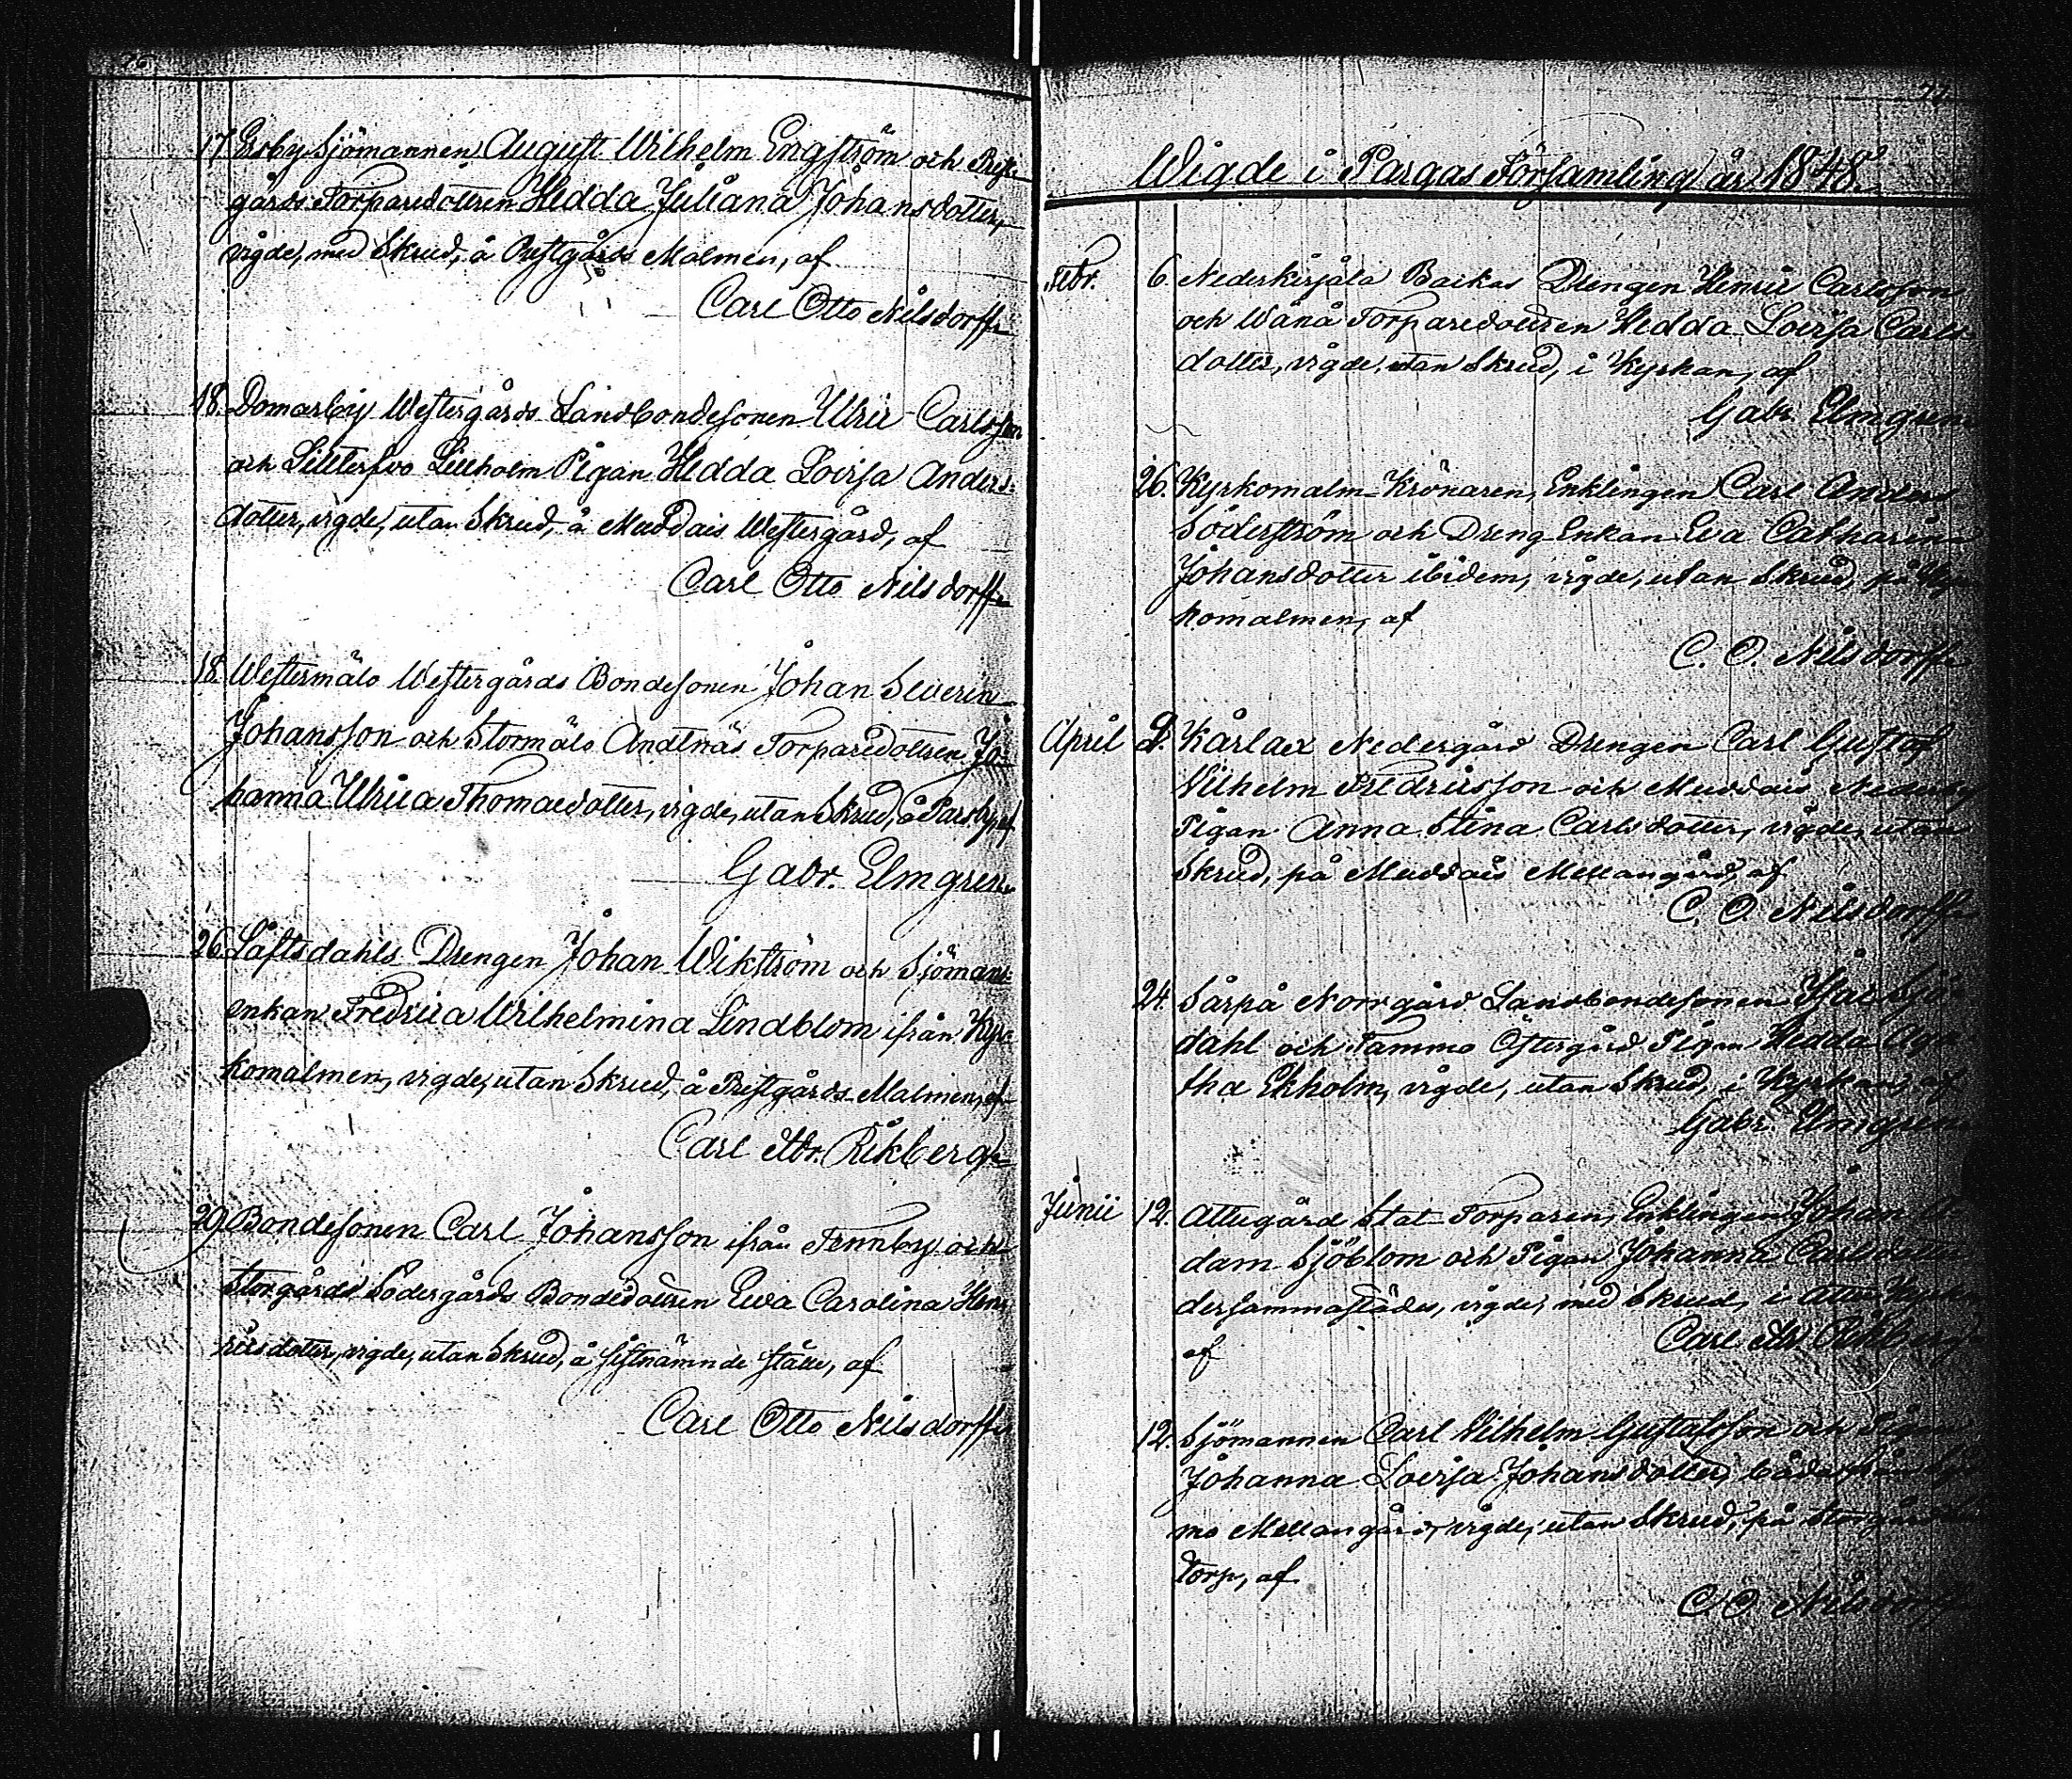 17. Ersby Sjömannen August Wilhelm Engström och Prest-
gårds Torparedottren Hedda Juliana Johansdotter,
vigde, med Skrud, å Prestgårds Malmen, af
Carl Otto Nilsdorff
18. Domarby Westergårds Landbondesonen Ulric Carlsson
och Lilltervo Lillholm Pigan Hedda Lovisa Anders-
dotter, vigde, utan Skrud, å Muddais Westergård, af
Carl Otto Nilsdorff
18. Westermälo Westergårds Bondesonen Johan Severin
Johansson och Stormälo Andtnäs Torparedottren Jo-
hanna Ulrica Thomædotter, vigde, utan Skrud, å Parsby, af
Gabr. Elmgren
26. Löftsdahls Drengen Johan Wikström och Sjömans-
enkan Fredrica Wilhelmina Lindblom ifrån Kyr-
komalmen, vigde, utan Skrud, å Prestgårds Malmen, af
Carl Abr. Rikberg
29. Bondesonen Carl Johansson ifrån Tennby och
Storgårds Södergårds Bondedottren Eva Carolina Hen-
ricsdotter, vigde, utan Skrud, å sistnämnde ställe, af
Carl Otto Nilsdorff
Wigde i Pargas Församling år 1848.
Febr. 6. Nederkirjala Backas Drengen Henric Carlsson
och Wånå Torparedottren Hedda Lovisa Carls-
dotter, vigde, utan Skrud, i Kyrkan, af
Gabr. Elmgren
26. Kyrkomalm Krönaren, Enklingen Carl Anders
Söderström och Dreng Enkan Eva Catharina
Johansdotter ibidem, vigde, utan Skrud, på Kyr-
komalmen, af
C. O. Nilsdorff
April 2. Kårlax Nedergård Drengen Carl Gustaf
Vilhelm Fredricsson och Muddais Nederby
Pigan Anna Stina Carlsdotter, vigde, utan
Skrud, på Muddais Mellangård, af
C. O. Nilsdorff
24. Sårpå Norrgård Landbondesonen Isac Sjö-
dahl och Tammo Östergård Pigan Hedda Aga-
tha Ekholm, vigde, utan Skrud, i Kyrkan, af
Gabr. Elmgren
Junii 12. Attugård Stat-Torparen, Enklingen Johan A-
dam Sjöblom och Pigan Johanna Carlsdotter
dersammastädes, vigde, med Skrud, i Attu Kyrkan
af Carl Abr. Rikberg
12. Sjömannen Carl Vilhelm Gustafsson och Pigan
Johanna Lovisa Johansdotter, båda från
mo Mellangård, vigde, utan Skrud, på Storgård
Torp, af
C. O. Nilsdorff